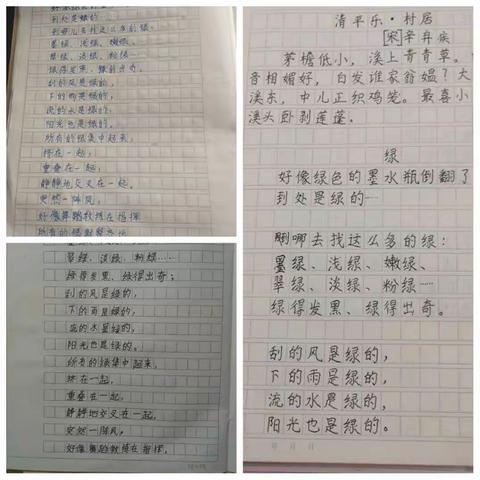 到处是绿的……
到哪儿去找这么多的绿:
墨绿、浅绿、嫩绿、
翠绿、淡绿、粉绿……
绿得发黑、绿得出奇;
刮的风是绿的,
下的雨是绿的,
流的水是绿的,
阳光也是绿的。
所有的绿集中起来,
挤在一起,
重叠在一起,
静静地交叉在一起。
突然一阵风,
好像舞蹈教练在指挥
所有的绿就整齐
翠绿、淡绿、粉绿……
绿得发黑、绿得出奇;
刮的风是绿的,
下的雨是绿的,
流的水是绿的,
阳光也是绿的。
所有的绿集中起来,
挤在一起,
重叠在一起,
静静地交叉在一起。
突然一阵风,
好像舞蹈教练在指挥,
清平乐·村居
[宋]辛弃疾
茅檐低小,溪上青青草。
音相媚好,白发谁家翁媪?大
溪东,中儿正织鸡笼。最喜小
溪头卧剥莲蓬。
绿
好像绿色的墨水瓶倒翻了
到处是绿的…
去找这么多的绿:
墨绿、浅绿、嫩绿、
翠绿、淡绿、粉绿……
绿得发黑、绿得出奇。
刮的风是绿的,
下的雨是绿的,
流的水是绿的,
阳光也是绿的。
年 月 日